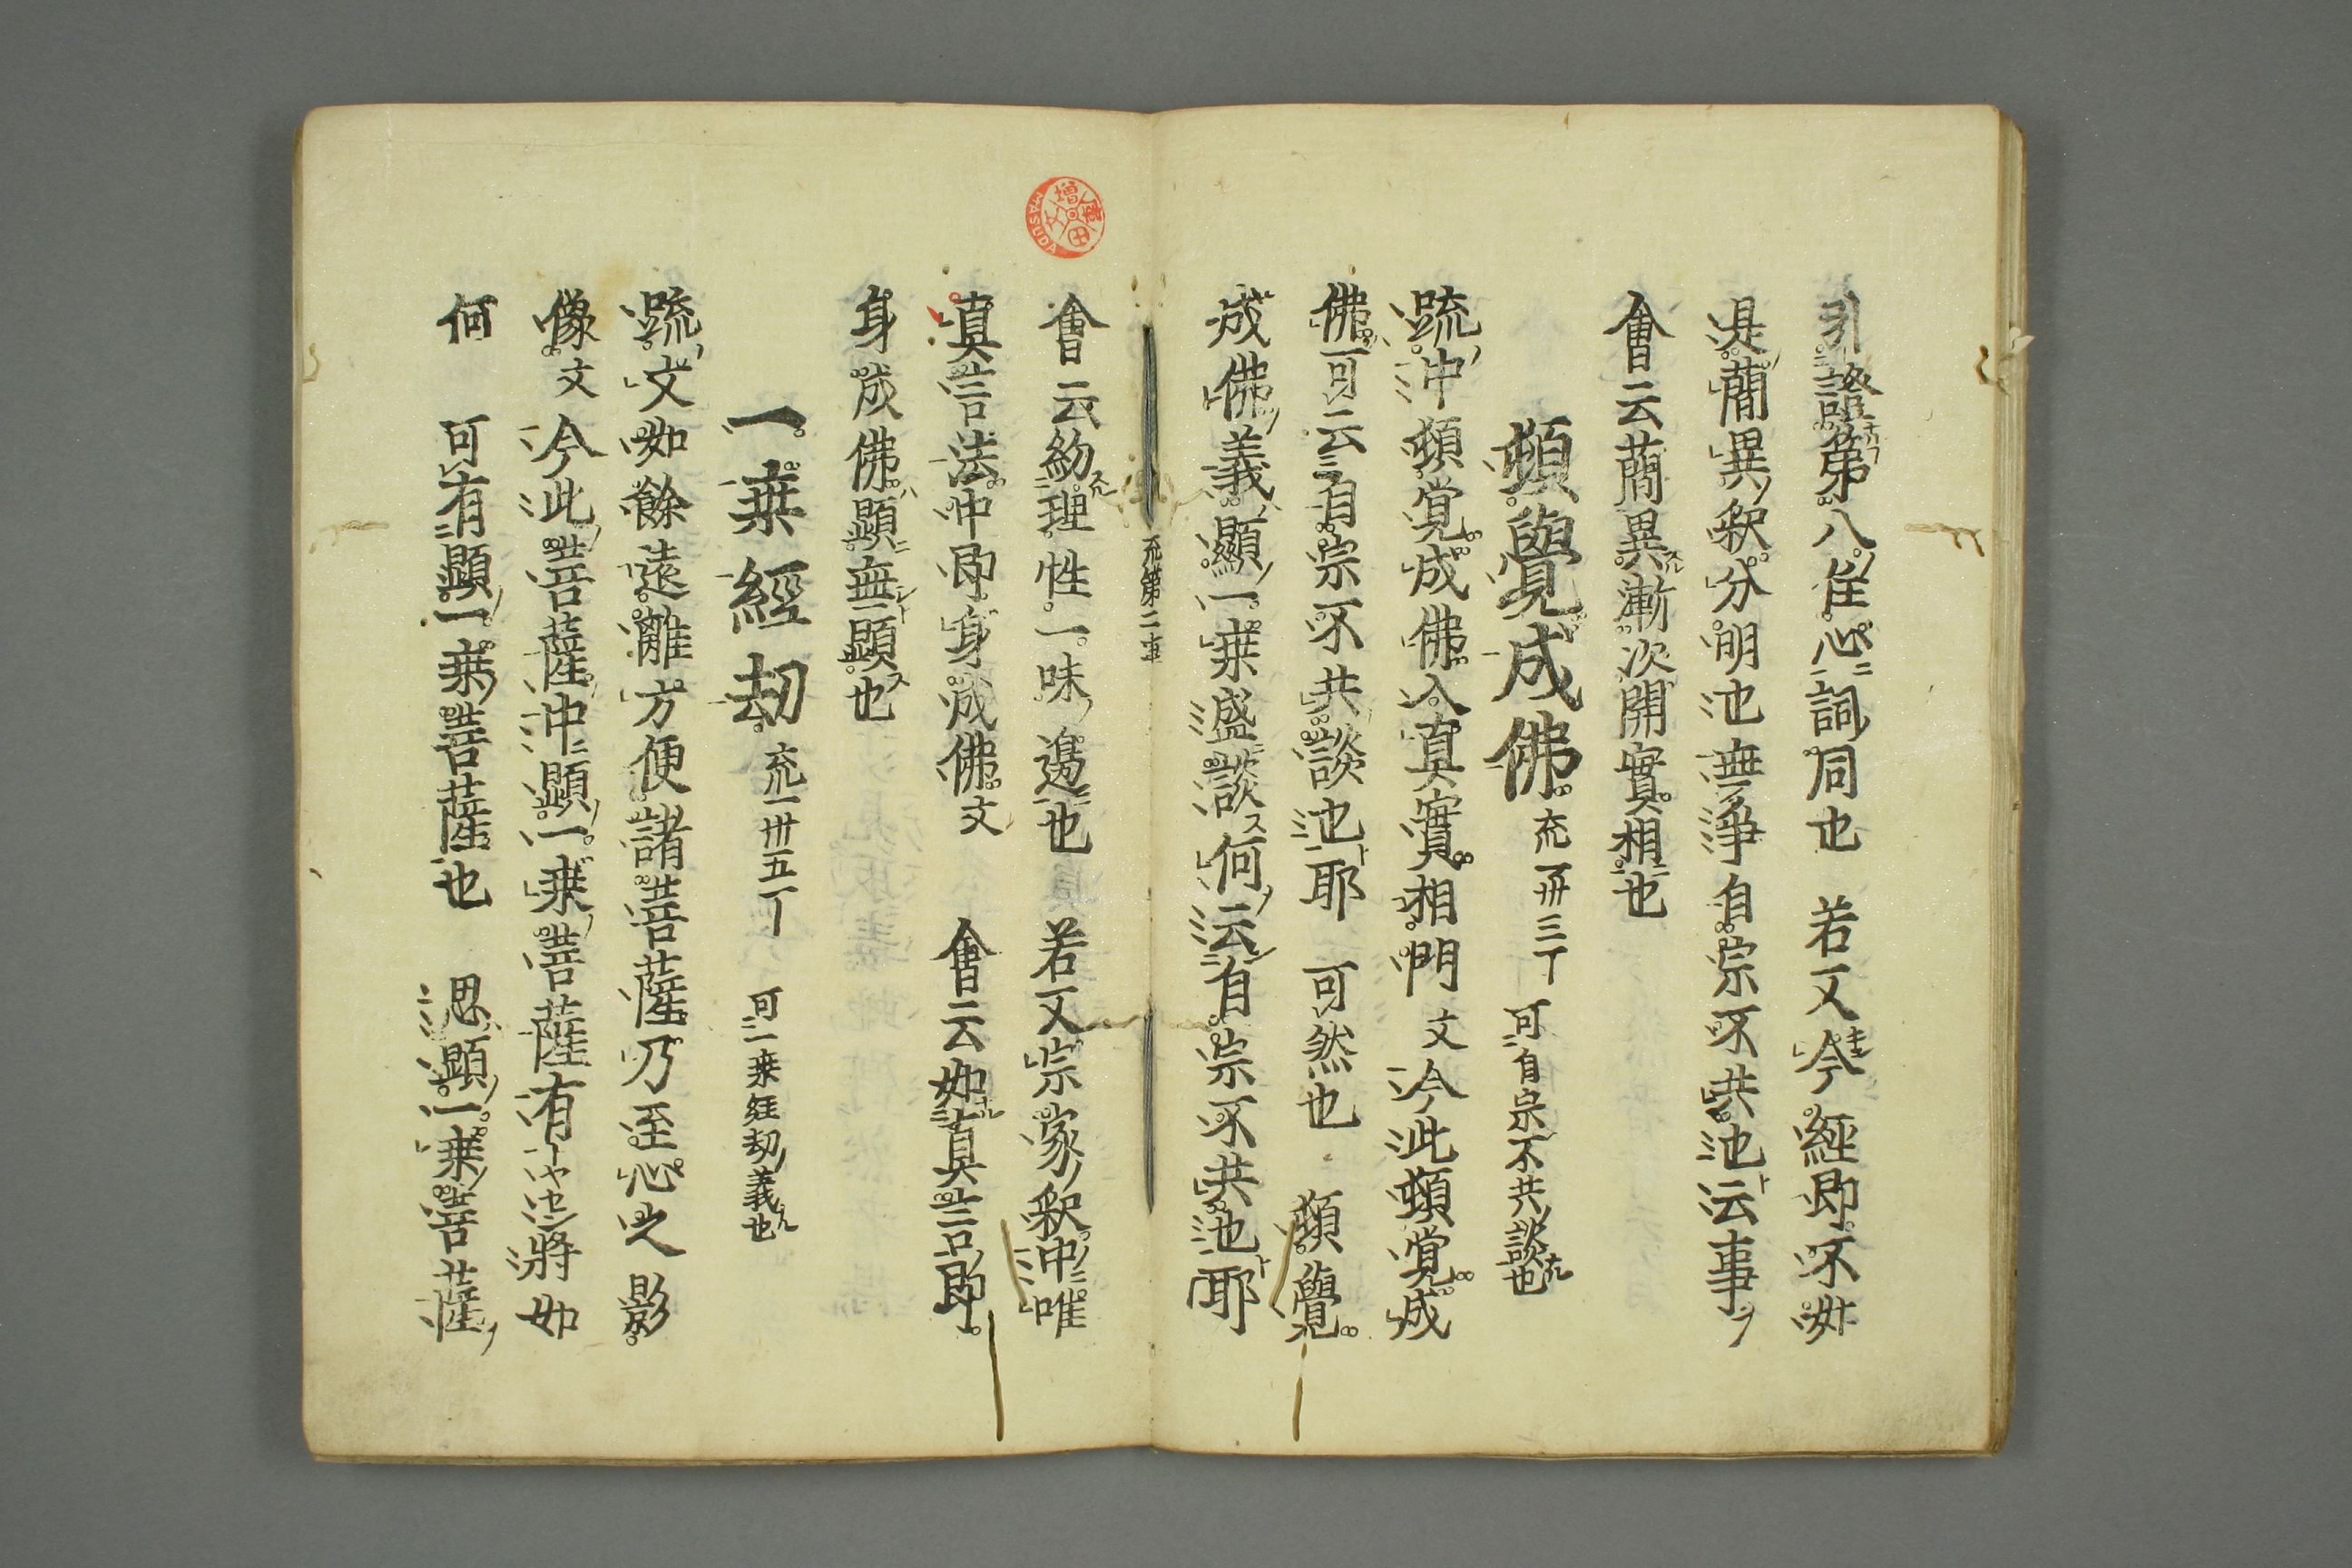 引證第八住心詞同也　若又今經即不如
是蕳異釈分明也無浄自宗不共也云事
會云蕳異漸次開實相也
頓覺成佛 充一卅三丁 可自宗不共談也
疏中頓覚成佛入真實相門文今此頓覚成
佛可云自宗不共談也耶　可然也　頓覺
成佛義顯一乗盛談何云自宗不共也耶
充第二車
會云約理性一味邊也　若又宗家釈中唯
真言法中即身成佛文　會云如真言即
身成佛顯無顕也
一乗經劫 充一卅五丁 可一乗経劫義也
疏文如餘遠離方便諸菩薩乃至心之影
像文今此菩薩中顕一乗菩薩有也將如
何　可有顕一乗菩薩也　思顕一乗菩薩
増田文
MASUDA